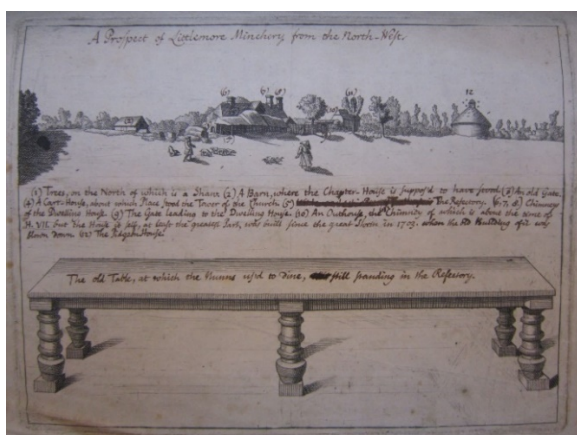 A Prospect of Littlemore Minchery from the North-West.
12
(1) Trees, on the North of which is a (2) A Barn, where the Chapter-House is suppos'd to have stood (3) An old Gate.
(4) A Cart-House, about which Place stood the Tower of the Church (5) The Refectory. (6, 7, 8) Chimneys
of the Dwelling House. (9) The Gate leading to the Dwelling House. (10) An Outhouse, the Chimney of which is about the time of
H. VII. but the House is so, at least the greatest Part, was built since the great Storm in 1703. when the old Building of it was
blown down. (12) The Pigeon House.
The old Table, at which the Nunns us'd to dine, still standing in the Refectory.